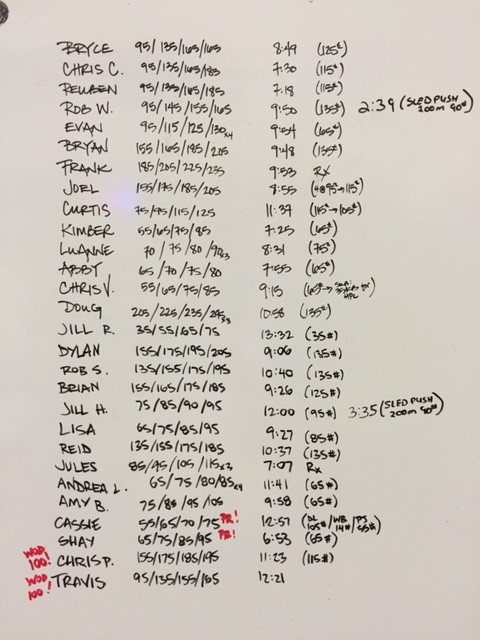 BRYCE 95/135/165/165 8:49 (125#)
CHRIS C. 95/135/165/185 7:30 (115#)
REUBEN 95/135/165/185 7:18 (115#)
ROB W. 95/145/155/165 9:50 (135#) 2:39 (SLED PUSH 200m 90#)
EVAN 95/115/125/130x4 9:54 (65#)
BRYAN 155/165/185/205 9:48 (135#)
FRANK 185/205/225/235 9:53 Rx
JOEL 155/175/185/205 8:55 (4@95→115#)
CURTIS 75/95/115/125 11:37 (115#→105#)
KIMBER 55/65/75/85 7:25 (65#)
LUANNE 70/75/80/90x3 8:31 (75#)
ABBY 65/70/75/80 7:55 (65#)
CHRIS V. 55/65/75/85 9:15 (65#→
DOUG 205/225/235/245x3 10:58 (135#)
JILL R. 35/55/65/75 13:32 (35#)
DYLAN 155/175/195/205 9:06 (135#)
ROB S. 135/155/175/195 10:40 (135#)
BRIAN 155/165/175/185 9:26 (125#)
JILL H. 75/85/90/95 12:00 (95#) 3:35 (SLED PUSH 200m 90#)
LISA 65/75/85/95 9:27 (85#)
REID 135/155/175/185 10:37 (135#)
JULES 85/95/105/115x3 7:07 Rx
ANDREA L. 65/75/80/85x4 11:41 (65#)
AMY B. 75/85/95/105 9:58 (65#)
CASSIE 55/65/70/75 PR! 12:57 (DL 105#/WB 14#/PJ 55#)
SHAY 65/75/85/95 PR! 6:53 (65#)
WOD 100! CHRIS P. 155/175/185/195 11:23 (115#)
WOD 100! TRAVIS 95/135/155/165 12:21